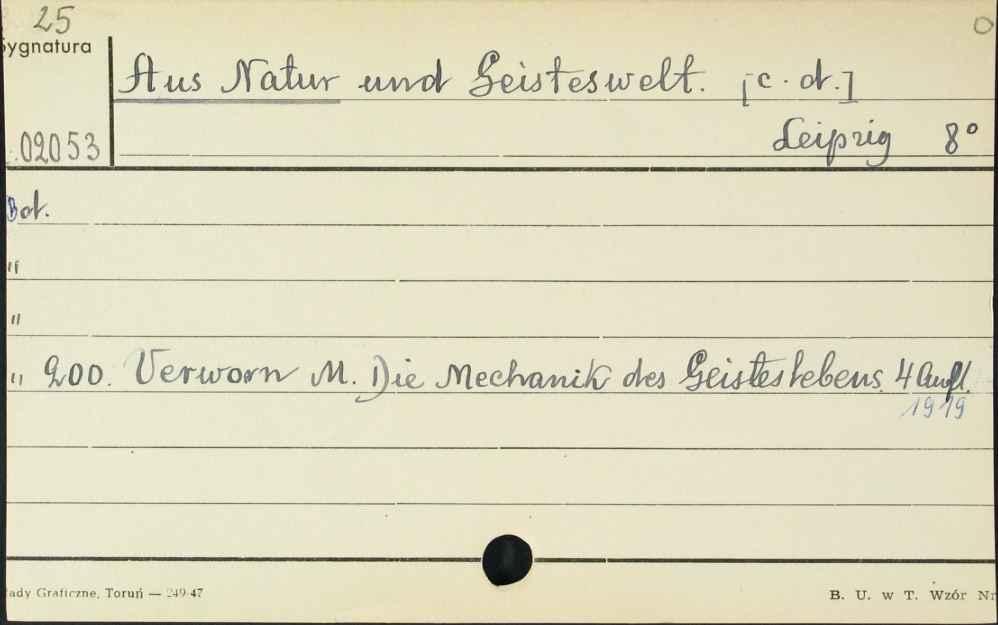 25
Sygnatura
02053
Aus Natur und Geisteswelt. [c. d.]
Leipzig 8°
Bd.
"
"
" 200. Verworn M. Die Mechanik des Geisteslebens. 4 Aufl.
1919
ady Graficzne, Toruń — 249-47
B. U. w T. Wzór Nr